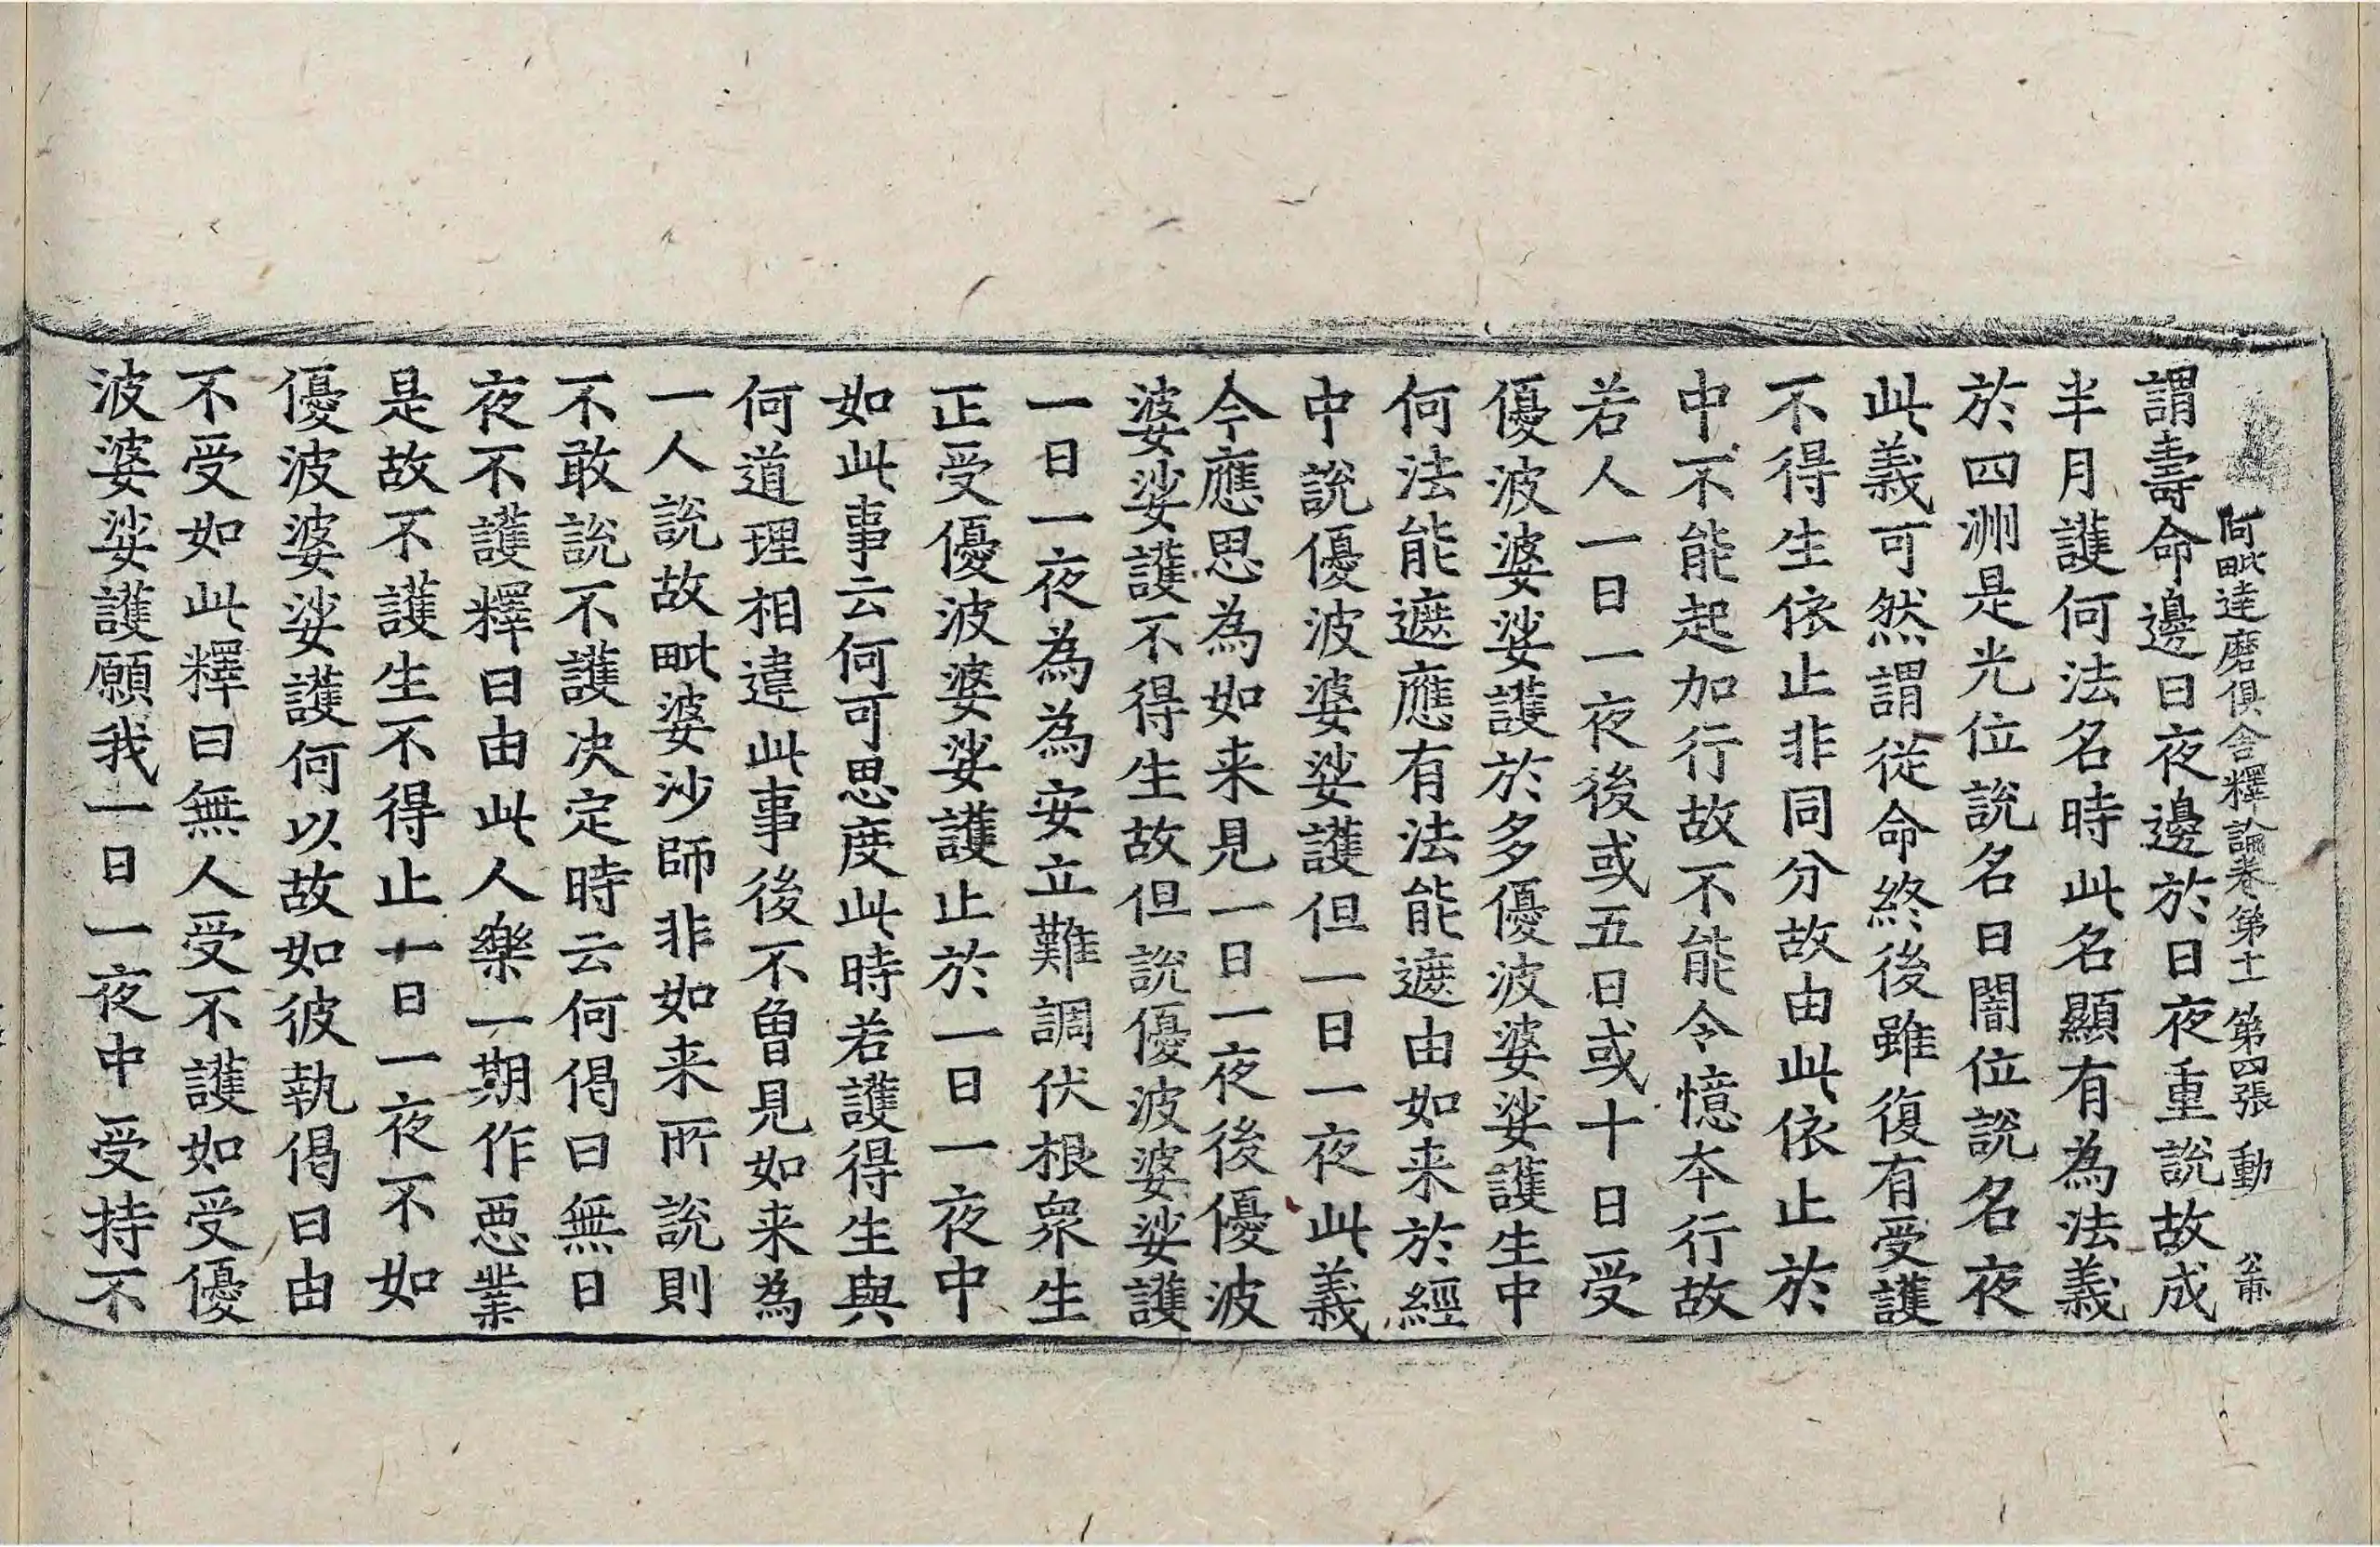 阿毗達磨俱舍釋論卷第十一 第四張 動
謂壽命邊日夜邊於日夜重說故成
半月護何法名時此名顯有為法義
於四洲是光位說名日闇位說名夜
此義可然謂從命終後雖復有受護
不得生依止非同分故由此依止於
中不能起加行故不能令憶本行故
若人一日一夜後或五日或十日受
優波婆娑護於多優波婆娑護生中
何法能遮應有法能遮由如来於經
中說優波婆娑護但一日一夜此義
今應思為如来見一日一夜後優波
婆娑護不得生故但說優波婆娑護
一日一夜為為安立難調伏根衆生
正受優波婆娑護止於一日一夜中
如此事云何可思度此時若護得生與
何道理相違此事後不曾見如来為
一人說故毗婆沙師非如来所說則
不敢說不護决定時云何偈曰無日
夜不護釋曰由此人樂一期作惡業
是故不護生不得止一日一夜不如
優波婆娑護何以故如彼執偈曰由
不受如此釋曰無人受不護如受優
波婆娑護願我一日一夜中受持不